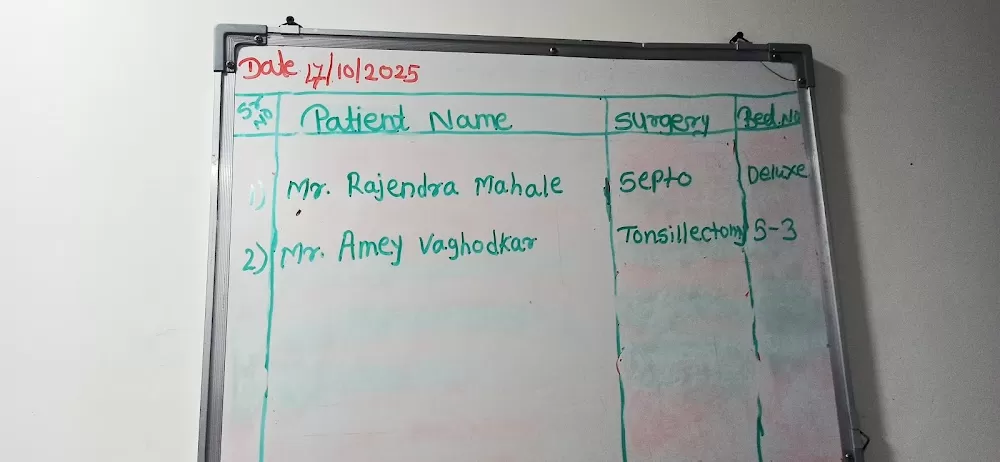 Date 17/10/2025
Sr No Patient Name Surgery Bed.No
1) Mr. Rajendra Mahale Septo Deluxe
2) Mr. Amey Vaghodkar Tonsillectomy S-3